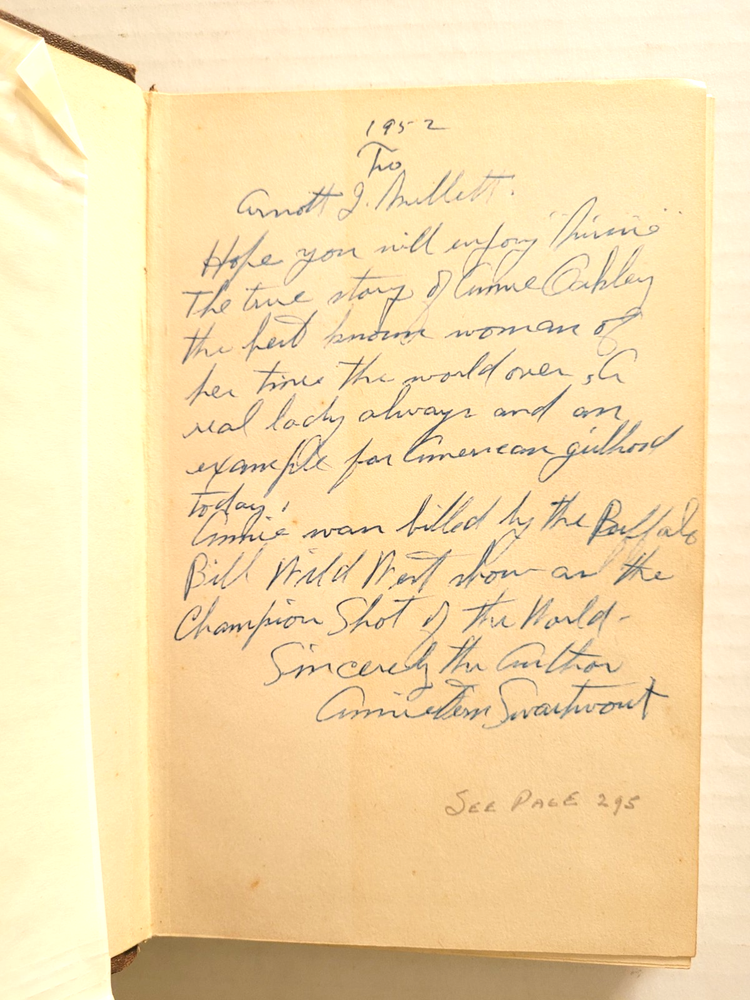 1952
To
Arnott J. Millett.
Hope you will enjoy "Missie"
The true story of Annie Oakley
the best known woman of
her time the world over, A
real lady always and an
example for American girlhood
today,
Annie was billed by the Buffalo
Bill Wild West show as the
Champion Shot of the World-
Sincerely the Author
Annie Fern Swartwout
SEE PAGE 295